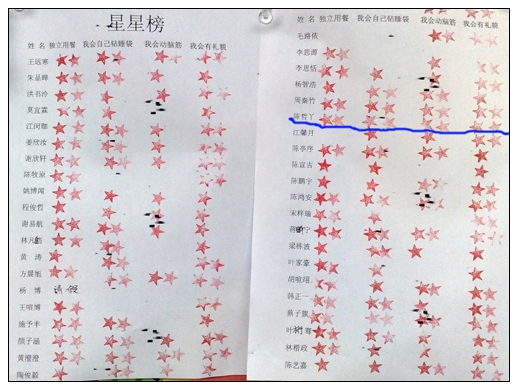 星星榜
姓名 独立用餐 我会自己钻睡袋 我会动脑筋 我会有礼貌
王远寒
朱显晔
洪书泠
莫宜霖
江河
姜欣汝
谢欣轩
陈牧原
姚博闻
程俊哲
谢易航
林凡
黄涛
方晨旭
杨博 请假
王暄博
施予丰
颜子涵
黄澄澄
陶俊毅
姓名 独立用餐 我会自己钻睡袋 我会动脑筋 我会有礼貌
毛路依
李思源
李思恬
杨智浩
周秦竹
陈哲丫
江馨月
陈亭序
陈宣吉
陈鹏宇
陈鸿安
宋梓瑜
宁
梁栋波
叶家豪
胡暄翊
韩正一
蔡子旗
叶
林楷政
陈艺嘉